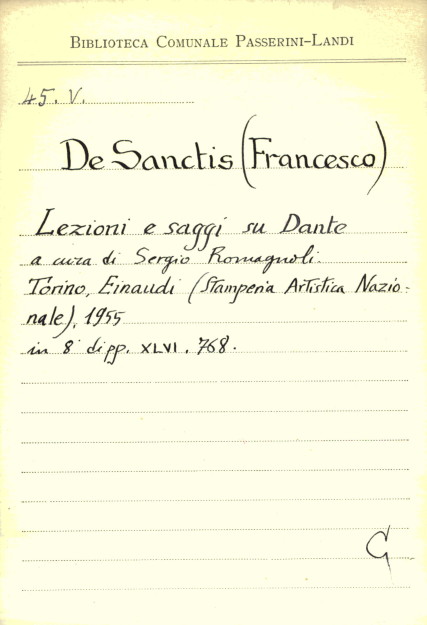 BIBLIOTECA COMUNALE PASSERINI-LANDI
45. V.
De Sanctis (Francesco)
Lezioni e saggi su Dante
a cura di Sergio Romagnoli.
Torino, Einaudi (Stamperia Artistica Nazio-
nale), 1955
in 8° di pp. XLVI. 768.
G